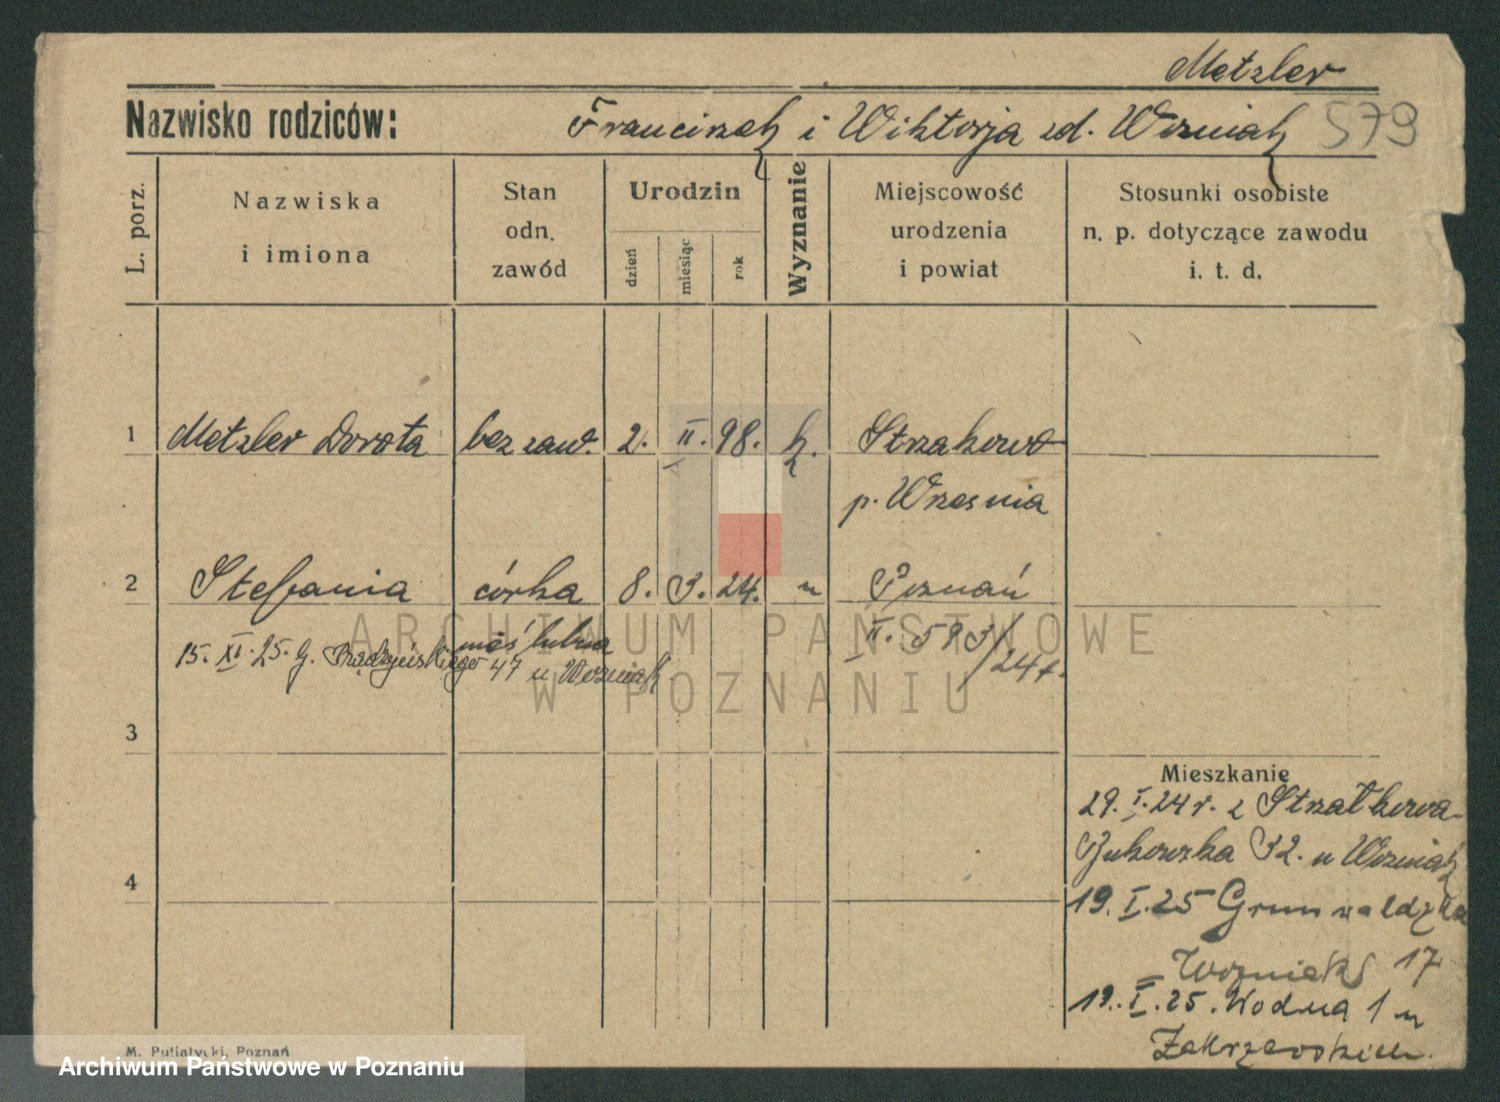 Metzler
Nazwisko rodziców: Franciszek i Wiktorja zd. Wozniak 579
L. porz.
Nazwiska
i imiona
Stan
odn.
zawód
Urodzin
dzień
miesiąc
rok
Wyznanie
Miejscowość
urodzenia
i powiat
Stosunki osobiste
n. p. dotyczące zawodu
i. t. d.
1 Metzler Dorota bez zaw. 2. II. 98. k. Strzakowo
p. Wrzesnia
2 Stefania córka 8. 3. 24. " Poznań
nieślubna II. 593/24r.
15. XI. 25. G. 47 u Wozniak
3
4
Mieszkanie
29. I. 24 r. z Strzałkowa
Bukowska 32. u Wozniak
19. I. 25 Grunwaldzka
Wozniak 17
19. II. 25. Wodna 1 u
Zakrzewskich.
M. Putiatycki, Poznań
ARCHIWUM PAŃSTWOWE
W POZNANIU
Archiwum Państwowe w Poznaniu